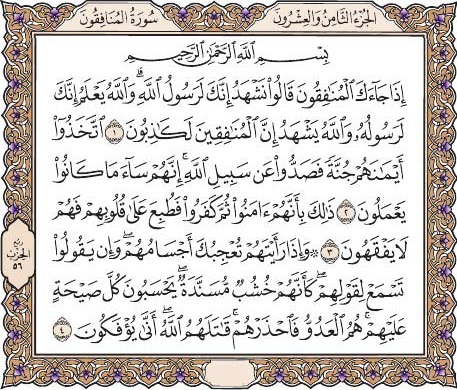 سُورَةُ المُنَافِقُونَ
الجُزْءُ الثَّامِنُ وَالعِشْرُونَ
بِسْمِ اللَّهِ الرَّحْمَٰنِ الرَّحِيمِ
إِذَا جَآءَكَ ٱلْمُنَٰفِقُونَ قَالُوا۟ نَشْهَدُ إِنَّكَ لَرَسُولُ ٱللَّهِ ۗ وَٱللَّهُ يَعْلَمُ إِنَّكَ
لَرَسُولُهُۥ وَٱللَّهُ يَشْهَدُ إِنَّ ٱلْمُنَٰفِقِينَ لَكَٰذِبُونَ ١ ٱتَّخَذُوٓا۟
أَيْمَٰنَهُمْ جُنَّةً فَصَدُّوا۟ عَن سَبِيلِ ٱللَّهِ ۚ إِنَّهُمْ سَآءَ مَا كَانُوا۟
يَعْمَلُونَ ٢ ذَٰلِكَ بِأَنَّهُمْ ءَامَنُوا۟ ثُمَّ كَفَرُوا۟ فَطُبِعَ عَلَىٰ قُلُوبِهِمْ فَهُمْ
لَا يَفْقَهُونَ ٣ ۞ وَإِذَا رَأَيْتَهُمْ تُعْجِبُكَ أَجْسَامُهُمْ ۖ وَإِن يَقُولُوا۟
تَسْمَعْ لِقَوْلِهِمْ ۖ كَأَنَّهُمْ خُشُبٌ مُّسَنَّدَةٌ ۖ يَحْسَبُونَ كُلَّ صَيْحَةٍ
عَلَيْهِمْ ۚ هُمُ ٱلْعَدُوُّ فَٱحْذَرْهُمْ ۚ قَٰتَلَهُمُ ٱللَّهُ ۖ أَنَّىٰ يُؤْفَكُونَ ٤
ربع
الحزب
٥٦